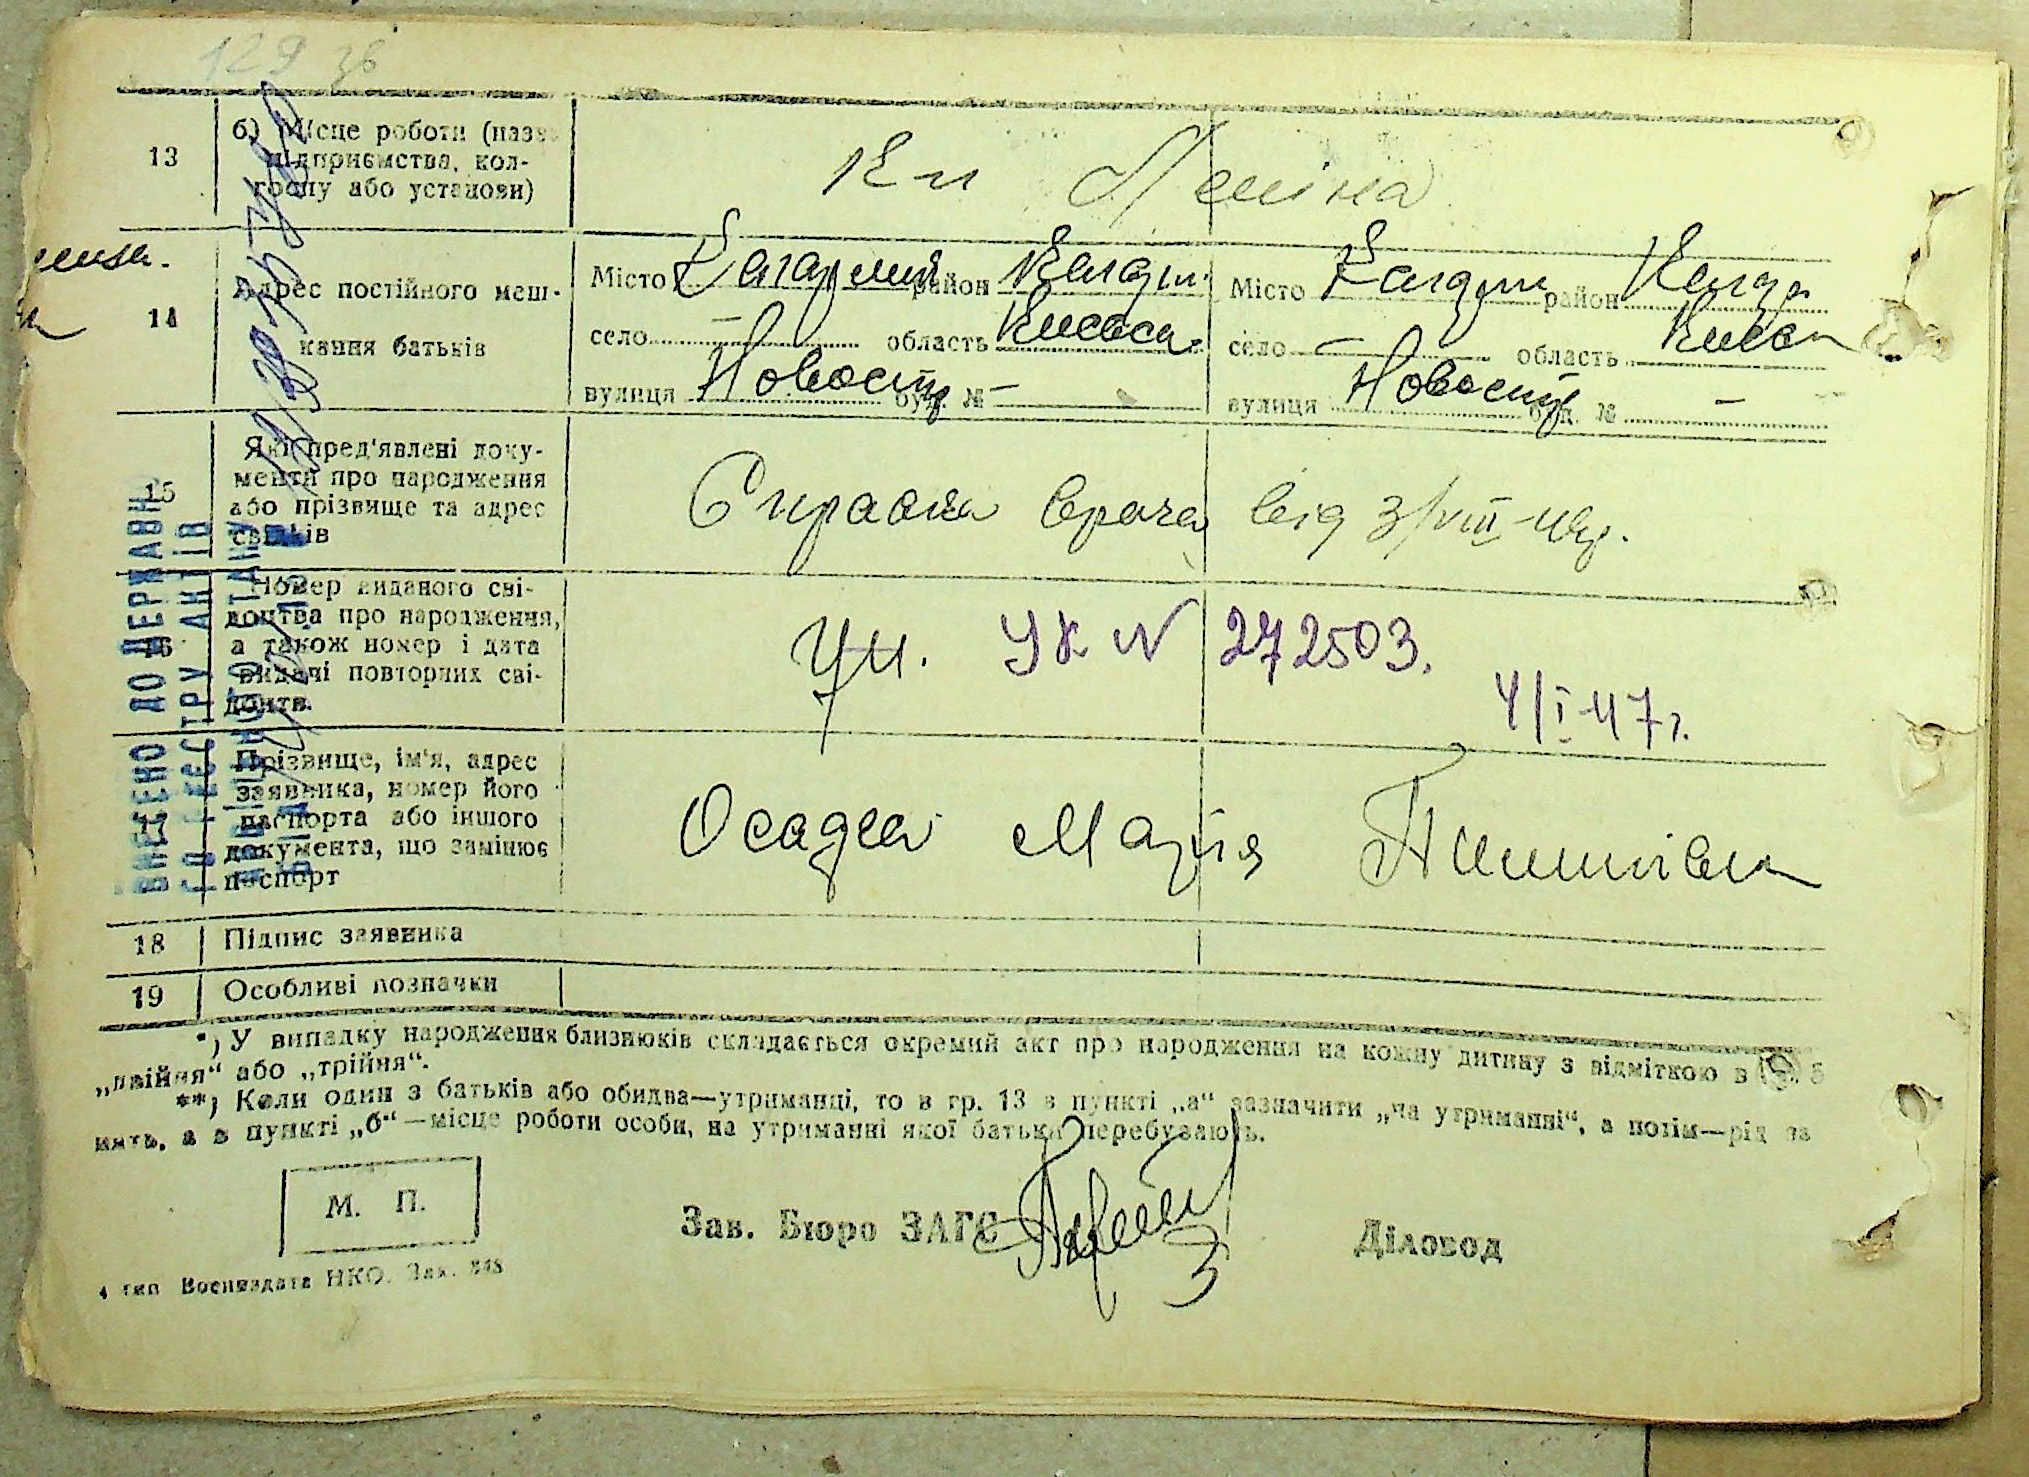 129 зв
13
б) Місце роботи (назва
підприємства, кол-
госпу або установи)
Км Леніна
14
Адрес постійного меш-
кання батьків
Місто Кагарлик район Кагарл.
село — область Київськ.
вулиця Новостр буд. № —
Місто Кагарл район Кагар
село — область Київськ
вулиця Новостр буд. № —
15
Які пред'явлені доку-
менти про народження
або прізвище та адрес
свідків
Справка врача від 3/VIII-46р.
16
Номер виданого сві-
доцтва про народження,
а також номер і дата
видачі повторних сві-
доцтв.
УК N 272503.
4/I-47г.
17
Прізвище, ім'я, адрес
заявника, номер його
паспорта або іншого
документа, що замінює
паспорт
Осадча Марія
18
Підпис заявника
19
Особливі позначки
*) У випадку народження близнюків складається окремий акт про народження на кожну дитину з відміткою в гр. 5
„двійня“ або „трійня“.
**) Коли один з батьків або обидва—утриманці, то в гр. 13 в пункті „а“ зазначити „на утриманні“, а потім—рід за
нять, а в пункті „б“—місце роботи особи, на утриманні якої батьки перебувають.
М. П.
Зав. Бюро ЗАГС
Діловод
4 тип Воениздата НКО. Зак.
ВНЕСЕНО ДО ДЕРЖАВН
ГО РЕЄСТРУ АКТІВ
ЦИВІЛЬНОГО СТАНУ